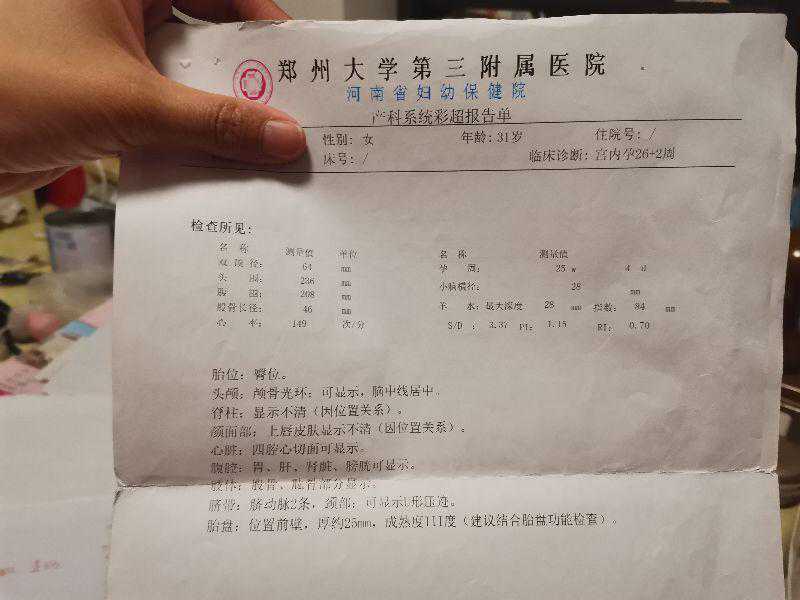 郑州大学第三附属医院
河南省妇幼保健院
产科系统彩超报告单
性别: 女 年龄: 31岁 住院号: /
床号: / 临床诊断: 宫内孕26+2周
检查所见:
名 称 测量值 单位 名 称 测量值
双顶径: 64 mm 孕 周: 25 w 4 d
头 围: 236 mm 小脑横径: 28 mm
腹 围: 208 mm 羊 水: 最大深度 28 mm 指数: 84 mm
股骨长径: 46 mm S/D : 3.37 PI: 1.15 RI: 0.70
心 率: 149 次/分
胎位: 臀位。
头颅: 颅骨光环: 可显示, 脑中线居中。
脊柱: 显示不清(因位置关系)。
颜面部: 上唇皮肤显示不清(因位置关系)。
心脏: 四腔心切面可显示。
腹腔: 胃、肝、肾脏、膀胱可显示。
肢体: 股骨、肱骨部分显示。
脐带: 脐动脉2条, 颈部: 可显示U形压迹。
胎盘: 位置前壁, 厚约25mm, 成熟度III度(建议结合胎盘功能检查)。